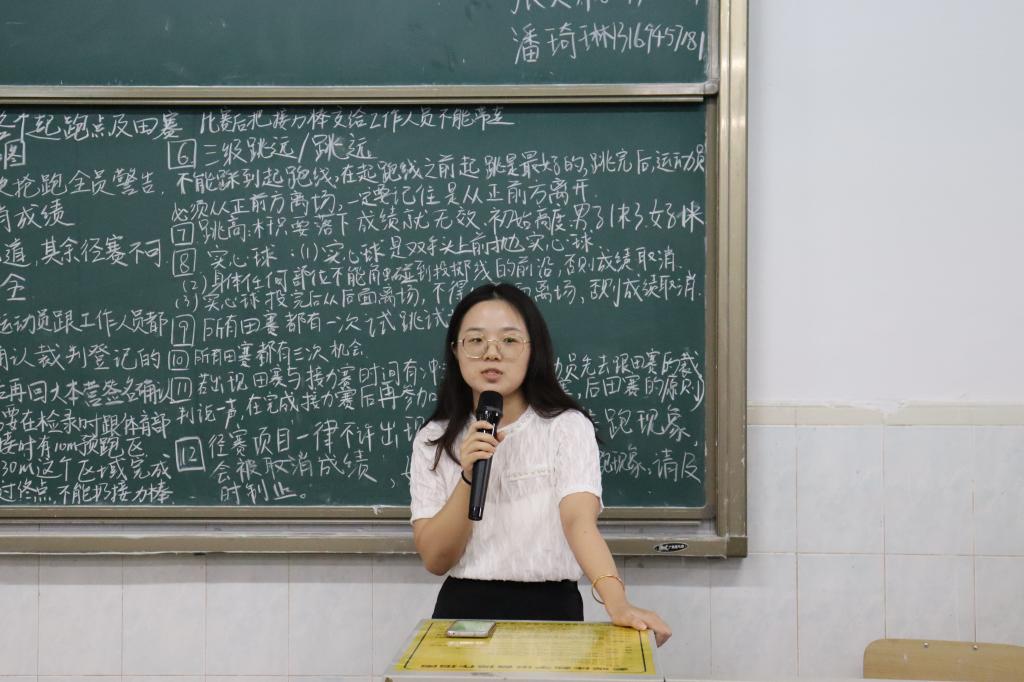 潘琦琳13169457181
各个起跑点及田赛
图
比赛后把接力棒交给工作人员不能带走
6 三级跳远/跳远
抢跑全员警告.
不能踩到起跑线,在起跑线之前起跳是最好的,跳完后,运动员
成绩
必须从正前方离场,一定要记住是从正前方离开
7 跳高:木杆要落下成绩就无效.初始高度:男
道,其余径赛不同
8 实心球:(1)实心球是双手头上前抛实心球.
全
(2)身体任何部位不能触碰到投掷线的前沿,否则成绩取消.
(3)实心球投完后从后面离场,不得 面离场,否则成绩取消.
运动员跟工作人员都
9 所有田赛都有一次试跳试
确认裁判登记的
10 所有田赛都有三次机会
后再回大本营签名确认
11 若出现田赛与接力赛时间有 员先去跟田赛的裁
判说一声,在完成接力赛后再参加 后田赛的原则)
要在检录时跟体育部
12 径赛项目一律不许出现 跑现象,
接时有10m预跑区
会被取消成绩 跑现象,请及
30m这个区域完成
时制止。
过终点,不能扔接力棒